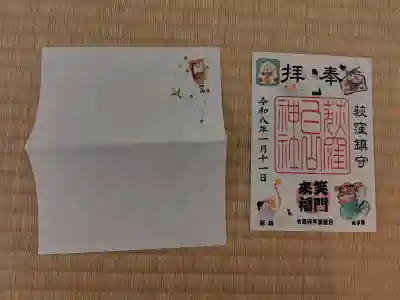 奉拝
荻窪鎮守
荻窪
白山
神社
令和八年一月十一日
笑門
来福